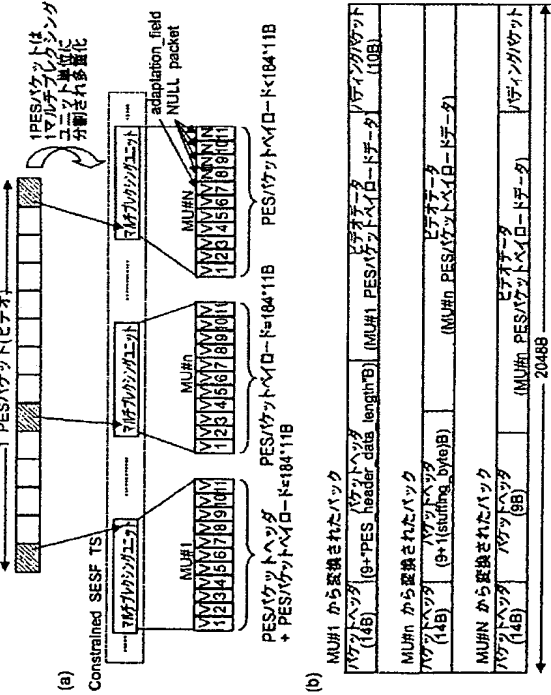 (a)
1 PESパケット(ビデオ)
1PESパケットは
1マルチプレクシング
ユニット単位に
分割され多重化
Constrained SESF TS
マルチプレクシングユニット
マルチプレクシングユニット
マルチプレクシングユニット
adaplation_field
NULL packet
MU#1
V V V V V V V V V V V
1 2 3 4 5 6 7 8 9 10 11
PESパケットヘッダ
+ PESパケットペイロード=184*11B
MU#n
V V V V V V V V V V V
1 2 3 4 5 6 7 8 9 10 11
PESパケットペイロード=184*11B
MU#N
1 2 3 4 5 6 7 8 9 10 11
PESパケットペイロード<184*11B
(b)
MU#1 から変換されたパック
パケットヘッダ
(14B)
パケットヘッダ
(9+"PES_header_data_length"B)
ビデオデータ
(MU#1 PESパケットペイロードデータ)
パディングパケット
(10B)
MU#n から変換されたパック
パケットヘッダ
(14B)
パケットヘッダ
(9+1(stuffing_byte)B)
ビデオデータ
(MU#n PESパケットペイロードデータ)
MU#N から変換されたパック
パケットヘッダ
(14B)
パケットヘッダ
(9B)
ビデオデータ
(MU#n PESパケットペイロードデータ)
パディングパケット
2048B